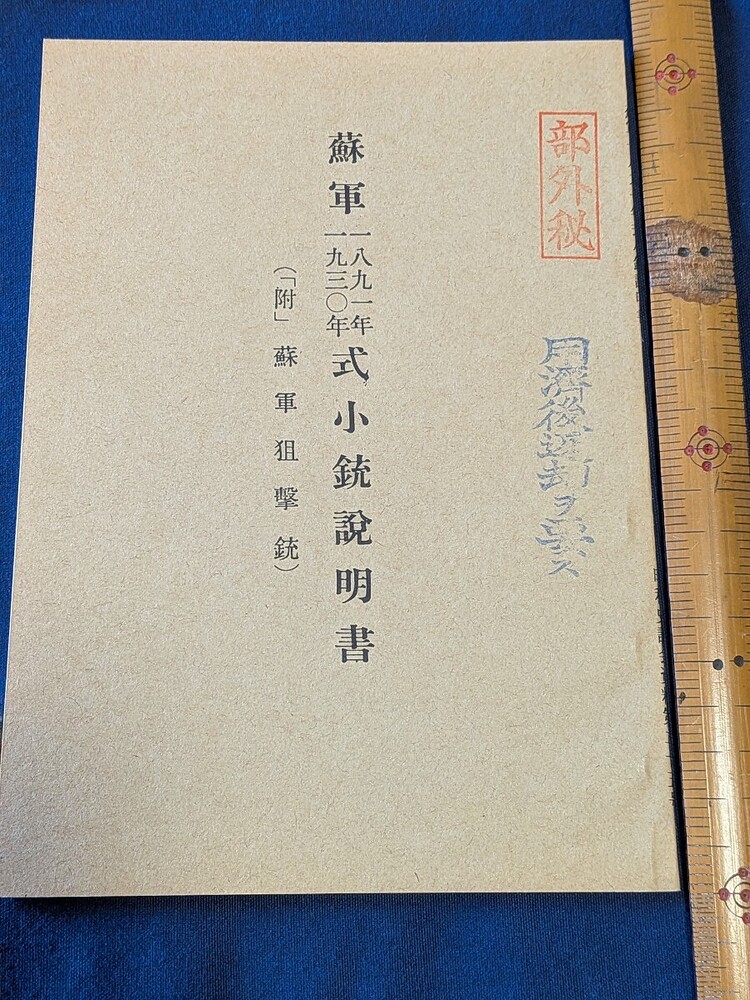 部外秘
用濟後返却ヲ要ス
蘇軍一八九一年
一九三〇年式小銃說明書
(「附」蘇軍狙擊銃)